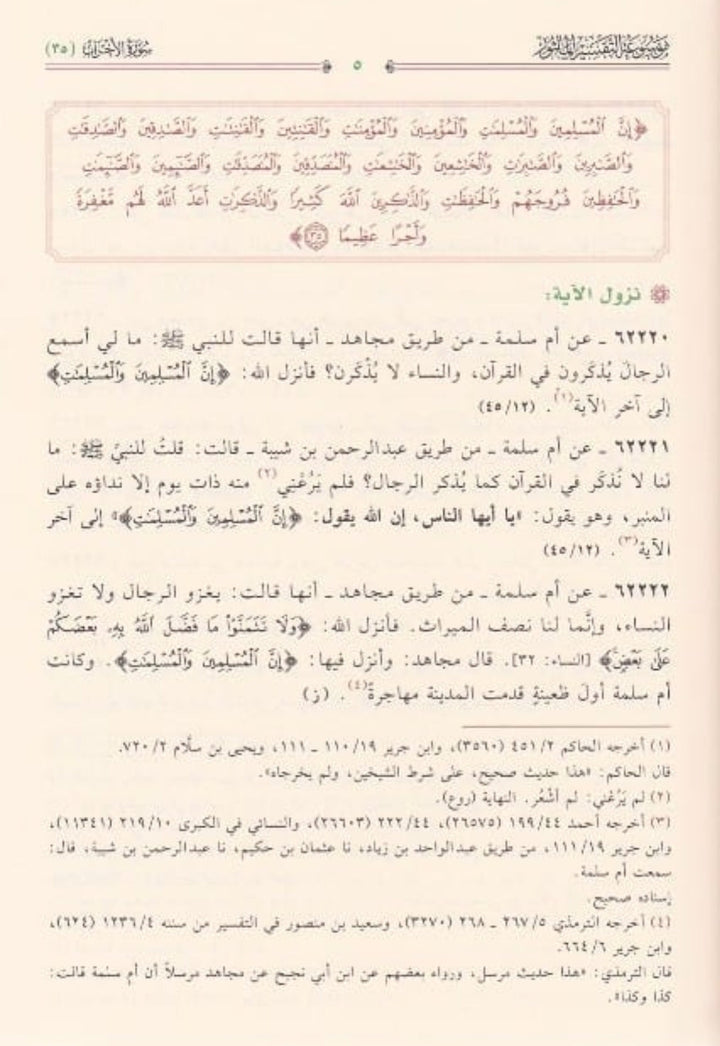 مَوْسُوعَةُ التَّفْسِيرِ المَأْثُورِ
٥
سُورَةُ الأَحْزَاب (٣٥)
﴿إِنَّ ٱلْمُسْلِمِينَ وَٱلْمُسْلِمَٰتِ وَٱلْمُؤْمِنِينَ وَٱلْمُؤْمِنَٰتِ وَٱلْقَٰنِتِينَ وَٱلْقَٰنِتَٰتِ وَٱلصَّٰدِقِينَ وَٱلصَّٰدِقَٰتِ
وَٱلصَّٰبِرِينَ وَٱلصَّٰبِرَٰتِ وَٱلْخَٰشِعِينَ وَٱلْخَٰشِعَٰتِ وَٱلْمُتَصَدِّقِينَ وَٱلْمُتَصَدِّقَٰتِ وَٱلصَّٰٓئِمِينَ وَٱلصَّٰٓئِمَٰتِ
وَٱلْحَٰفِظِينَ فُرُوجَهُمْ وَٱلْحَٰفِظَٰتِ وَٱلذَّٰكِرِينَ ٱللَّهَ كَثِيرًا وَٱلذَّٰكِرَٰتِ أَعَدَّ ٱللَّهُ لَهُم مَّغْفِرَةً
وَأَجْرًا عَظِيمًا ٣٥﴾
نزول الآية:
٦٢٢٢٠ ـ عن أم سلمة ـ من طريق مجاهد ـ أنها قالت للنبي ﷺ: ما لي أسمع
الرجالَ يُذكَرون في القرآن، والنساء لا يُذْكَرن؟ فأنزل الله: ﴿إِنَّ ٱلْمُسْلِمِينَ وَٱلْمُسْلِمَٰتِ﴾
إلى آخر الآية(١). (١٢/٤٥)
٦٢٢٢١ ـ عن أم سلمة ـ من طريق عبدالرحمن بن شيبة ـ قالت: قلتُ للنبيِّ ﷺ: ما
لنا لا نُذكَر في القرآن كما يُذكر الرجال؟ فلم يَرُعْني(٢) منه ذات يوم إلا نداؤه على
المنبر، وهو يقول: «يا أيها الناس، إن الله يقول: ﴿إِنَّ ٱلْمُسْلِمِينَ وَٱلْمُسْلِمَٰتِ﴾» إلى آخر
الآية(٣). (١٢/٤٥)
٦٢٢٢٢ ـ عن أم سلمة ـ من طريق مجاهد ـ أنها قالت: يغزو الرجال ولا تغزو
النساء، وإنَّما لنا نصف الميراث. فأنزل الله: ﴿وَلَا تَتَمَنَّوْا۟ مَا فَضَّلَ ٱللَّهُ بِهِۦ بَعْضَكُمْ
عَلَىٰ بَعْضٍ﴾ [النساء: ٣٢]. قال مجاهد: وأنزل فيها: ﴿إِنَّ ٱلْمُسْلِمِينَ وَٱلْمُسْلِمَٰتِ﴾. وكانت
أم سلمة أولَ ظعينةٍ قدمت المدينة مهاجرةً(٤). (ز)
(١) أخرجه الحاكم ٢/ ٤٥١ (٣٥٦٠)، وابن جرير ١٩/ ١١٠ ـ ١١١، ويحيى بن سلّام ٢/ ٧٢٠.
قال الحاكم: «هذا حديث صحيح، على شرط الشيخين، ولم يخرجاه».
(٢) لم يَرُعْني: لم أشْعُر. النهاية (روع).
(٣) أخرجه أحمد ٤٤/ ١٩٩ (٢٦٥٧٥)، ٤٤/ ٢٢٢ (٢٦٦٠٣)، والنسائي في الكبرى ١٠/ ٢١٩ (١١٣٤١)،
وابن جرير ١٩/ ١١١، من طريق عبدالواحد بن زياد، نا عثمان بن حكيم، نا عبدالرحمن بن شيبة، قال:
سمعت أم سلمة.
إسناده صحيح.
(٤) أخرجه الترمذي ٥/ ٢٦٧ ـ ٢٦٨ (٣٢٧٠)، وسعيد بن منصور في التفسير من سننه ٤/ ١٢٣٦ (٦٢٤)،
وابن جرير ٦/ ٦٦٤.
قال الترمذي: «هذا حديث مرسل، ورواه بعضهم عن ابن أبي نجيح عن مجاهد مرسلاً أن أم سلمة قالت:
كذا وكذا».